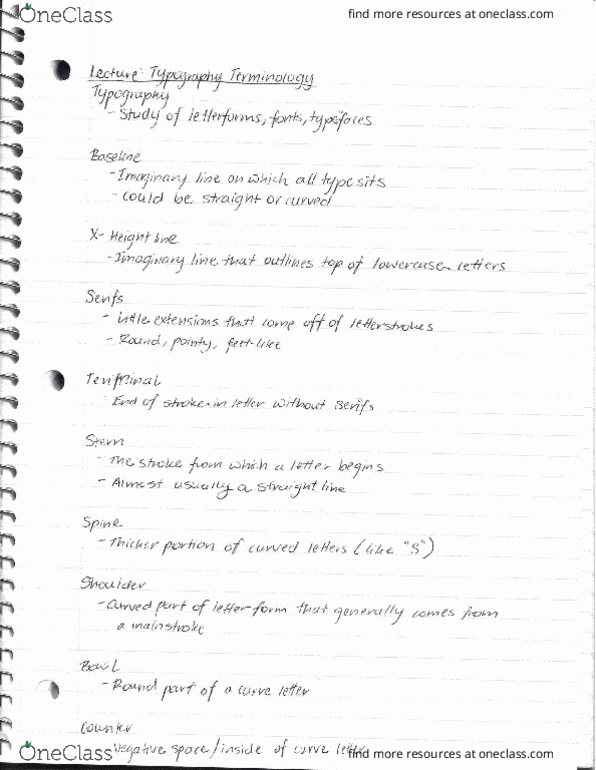 OneClass
find more resources at oneclass.com
Lecture: Typography Terminology
Typography
- Study of letterforms, fonts, typefaces
Baseline
- Imaginary line on which all type sits
- could be straight or curved
X-Height line
- Imaginary line that outlines top of lowercase letters
Serifs
- little extensions that come off of letterstrokes
- Round, pointy, feet-like
End of stroke in letter without serifs
Stem
- The stroke from which a letter begins
- Almost usually a straight line
Spine
- Thicker portion of curved letters (like "S")
Shoulder
- Curved part of letter form that generally comes from
a mainstroke
Bowl
- Round part of a curve letter
Counter
Negative space/inside of curve letter
OneClass
find more resources at oneclass.com